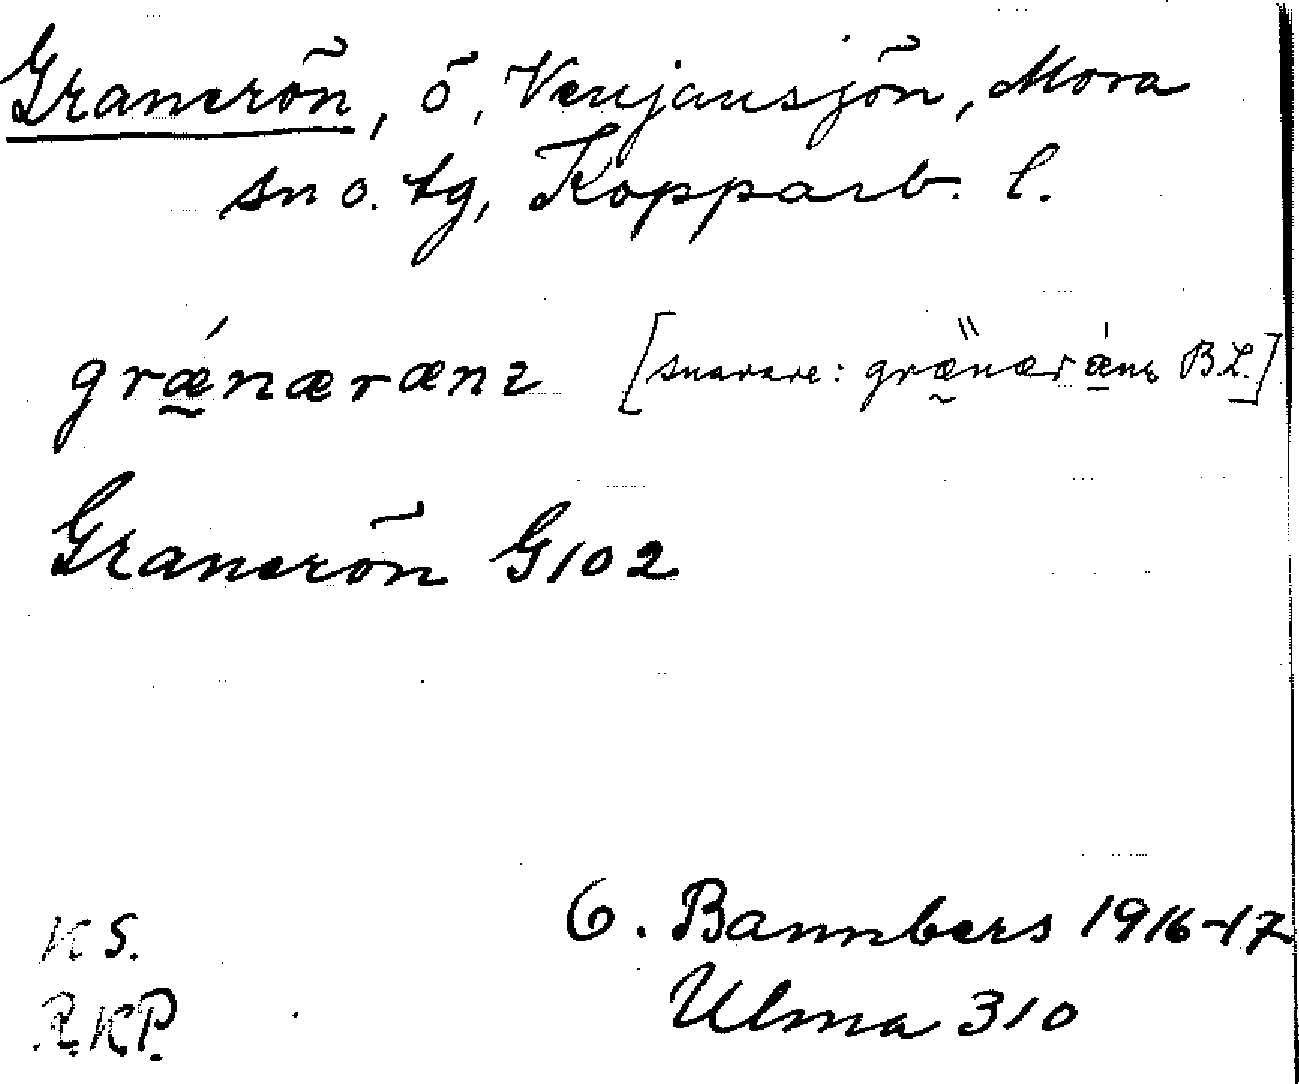 Granerön, ö, Venjansjön, Mora
sn o. tg, Kopparb. l.
grǽnærænz [snarare: græ̋nærænz BL.]
Granerön G102
KS. O. Bannbers 1916-17
R.K.P. Ulma 310